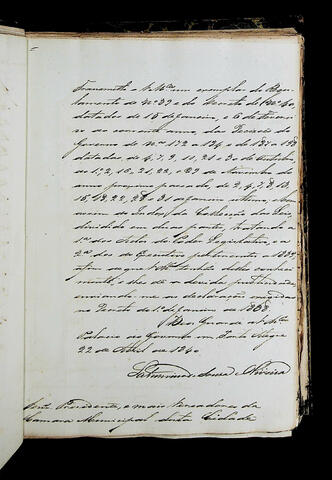 Transmitto a V. Mces um exemplar do Regu-
lamento de nº 39 e do Decreto de nº 40,
datados de 15 de Janeiro, e 6 de Feverei-
ro do corrente anno, dos Decretos do
Governo de nos 172 a 184 e de 187 a 193
datados, de 4, 7, 9, 10, 21 e 30 de Outubro
de 1, 2, 15, 21, 22, e 29 de Novembro do
anno proximo passado, de 2, 4, 7, 9, 13,
15, 18, 22, 28 e 31 de
assim do Index da Collecção das Leis,
dividido em duas partes, tratando a
1ª dos Actos do Poder Legislativo, e a
2ª dos do Executivo pertencente a 1839
afim de que V. Mces tenhão delles conheci-
mento, e lhes dê a devida publicidade,
enviando me as declarações exigidas
no Decreto de 1º de Janeiro de 1838
Deos Guarde a V. Mces
Palacio do Governo em Porto Alegre
22 de Abril de 1840
Saturnino de Souza e Oliveira
Snrs. Presidente, e mais Vereadores da
Camara Municipal desta Cidade